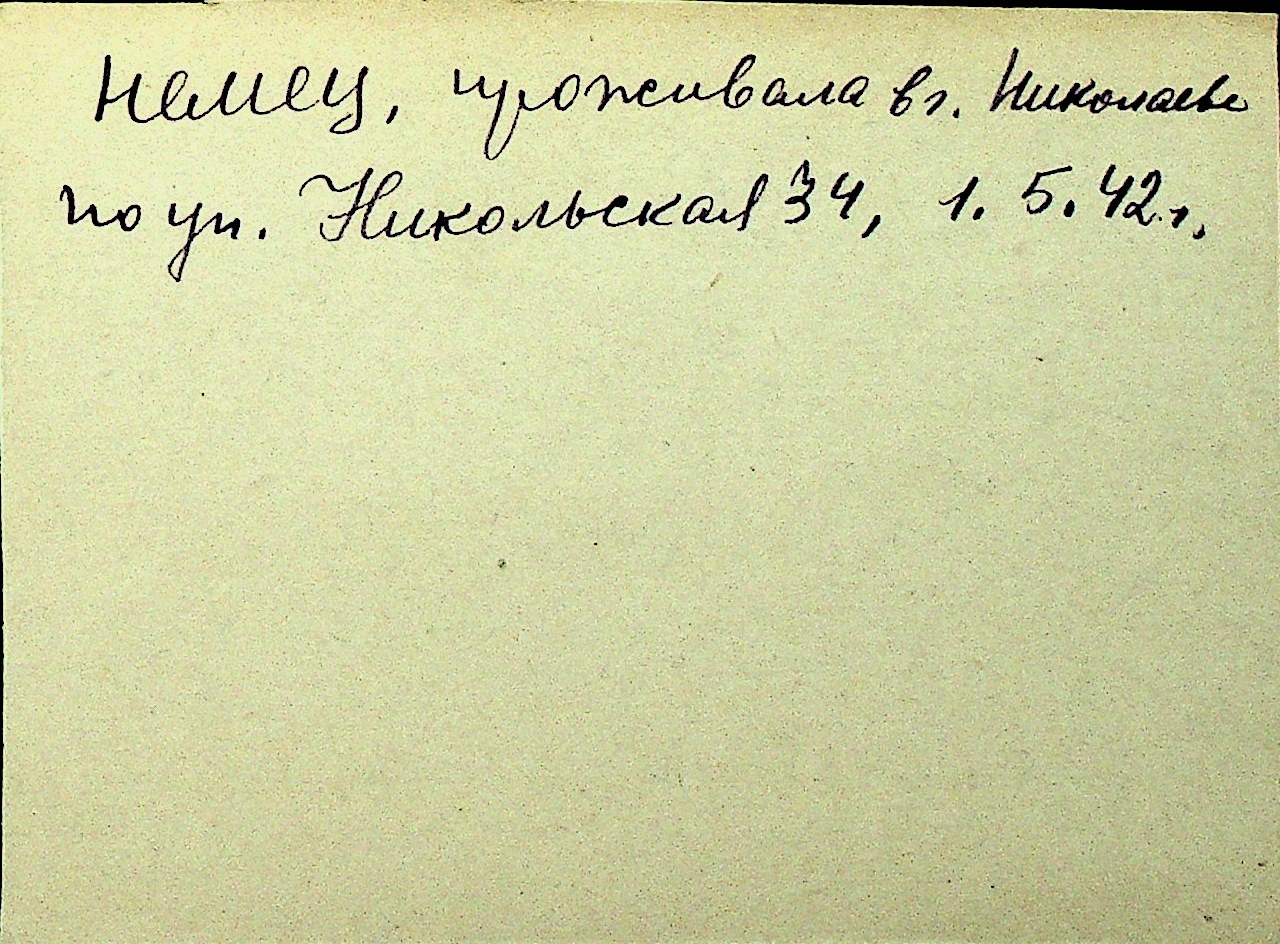 немец, проживала в г. Николаеве
по ул. Никольская 34, 1.5.42 г.